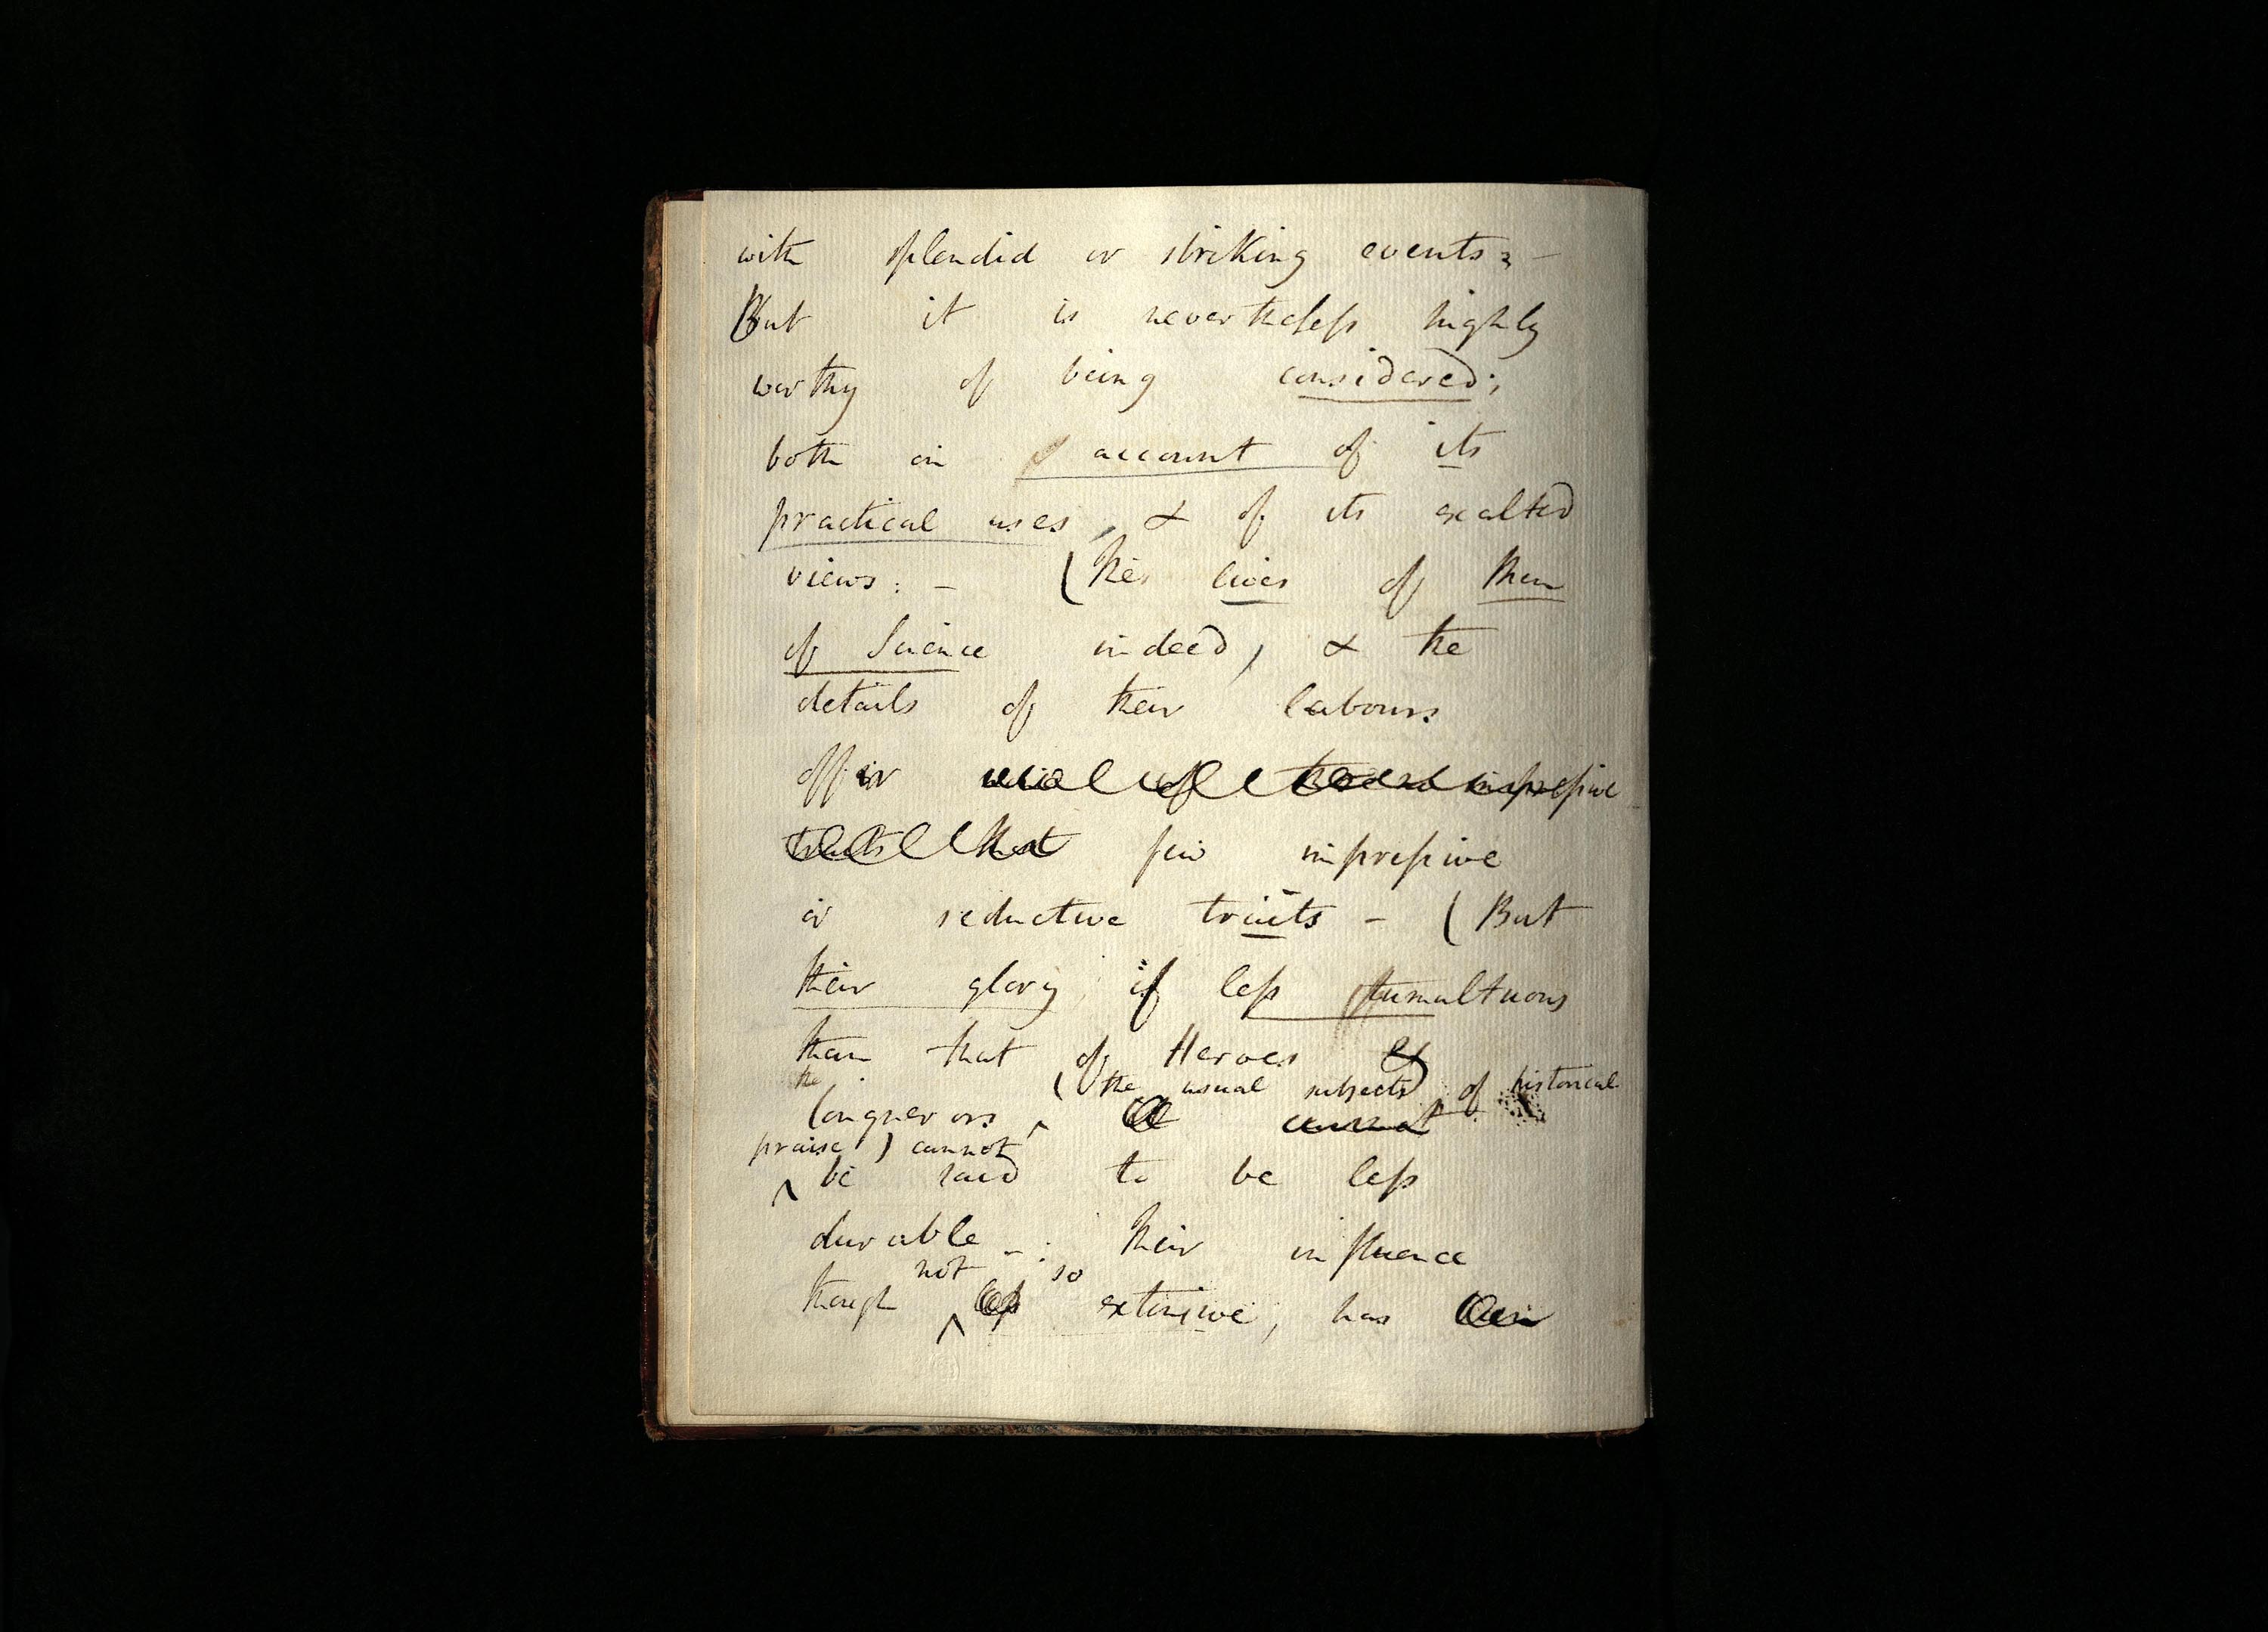 with splendid or striking events: -
But it is nevertheless highly
worthy of being considered;
both on account of its
practical uses, & of its exalted
views: - (The lives of Men
of Science indeed, & the
details of their labours
offer impressive
that few impressive
or seductive traits - (But
their glory if less tumultuous
than that of Heroes &
the (the usual subjects of historical
Conquerors cannot
praise) cannot
be said to be less
durable -: their influence
not so
though less extensive, has been